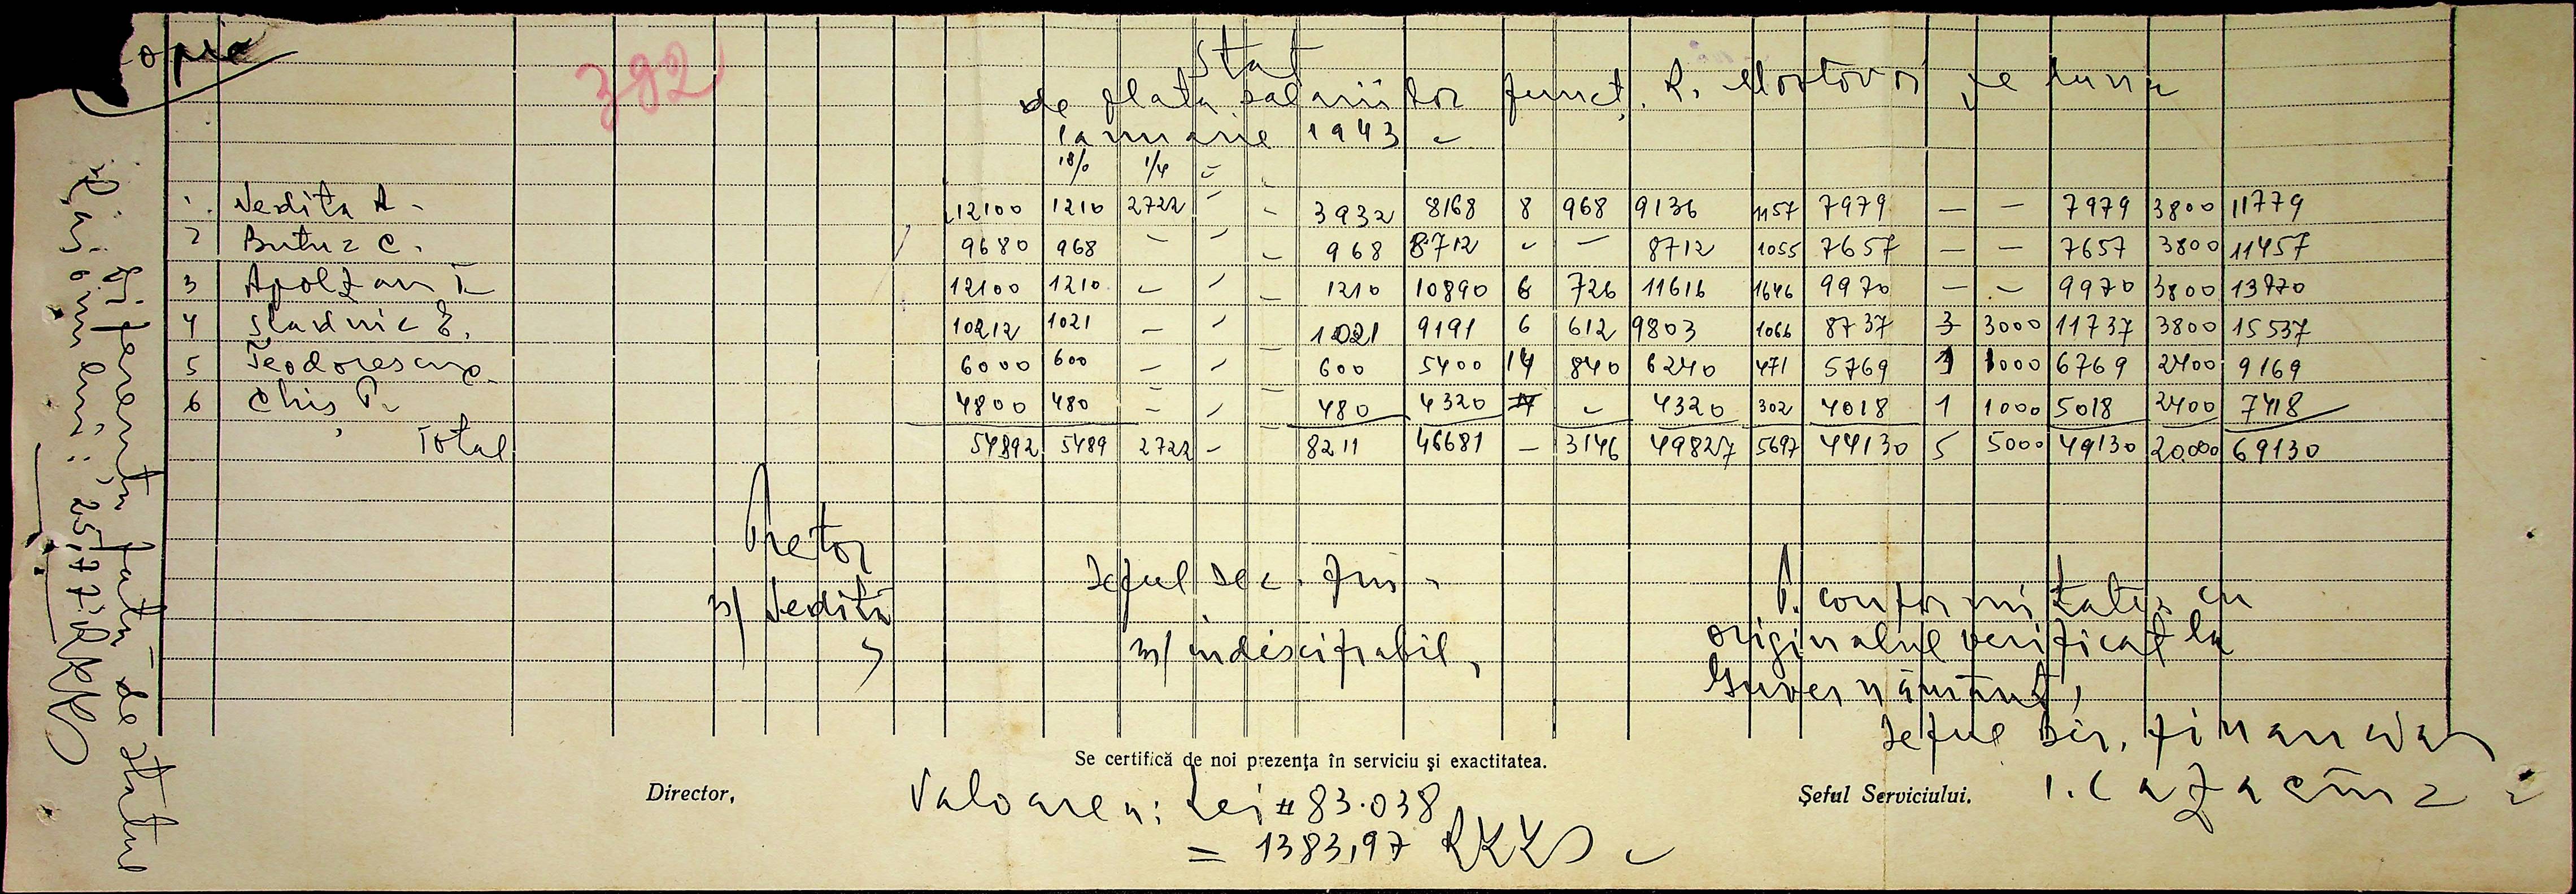 opie
392
Stat
de plata salariilor funct. R. Mostovoi pe luna
Ianuarie 1943
18/0 1/4 =
1. Nedita A - 12100 1210 2722 - - 3932 8168 8 968 9136 1157 7979 — — 7979 3800 11779
2 Butuz C. 9680 968 - - - 968 8712 - — 8712 1055 7657 — — 7657 3800 11457
3 Apolzan T- 12100 1210 - - - 1210 10890 6 726 11616 1646 9970 — — 9970 3800 13770
4 10212 1021 - - 1021 9191 6 612 9803 1066 8737 3 3000 11737 3800 15537
5 Teodorescu 6000 600 - - - 600 5400 14 840 6240 471 5769 1 1000 6769 2400 9169
6 Chis P. 4800 480 - - - 480 4320 - 4320 302 4018 1 1000 5018 2400 7418
Total 54892 5489 2722 - - 8211 46681 — 3146 49827 5697 44130 5 5000 49130 20000 69130
Pretor
ss/ Nedita
Șeful Sec. Fin.
ss/ indescifrabil,
P. conformitate cu
originalul verificat la
Guvernământ,
Șeful Bir. Financiar
I. Cazacincz
Se certifică de noi prezența în serviciu și exactitatea.
Director,
Șeful Serviciului.
Valoarea: Lei # 83.038
= 1383,97 RKKS
Diferenta fată de statul
25,77 RKKS